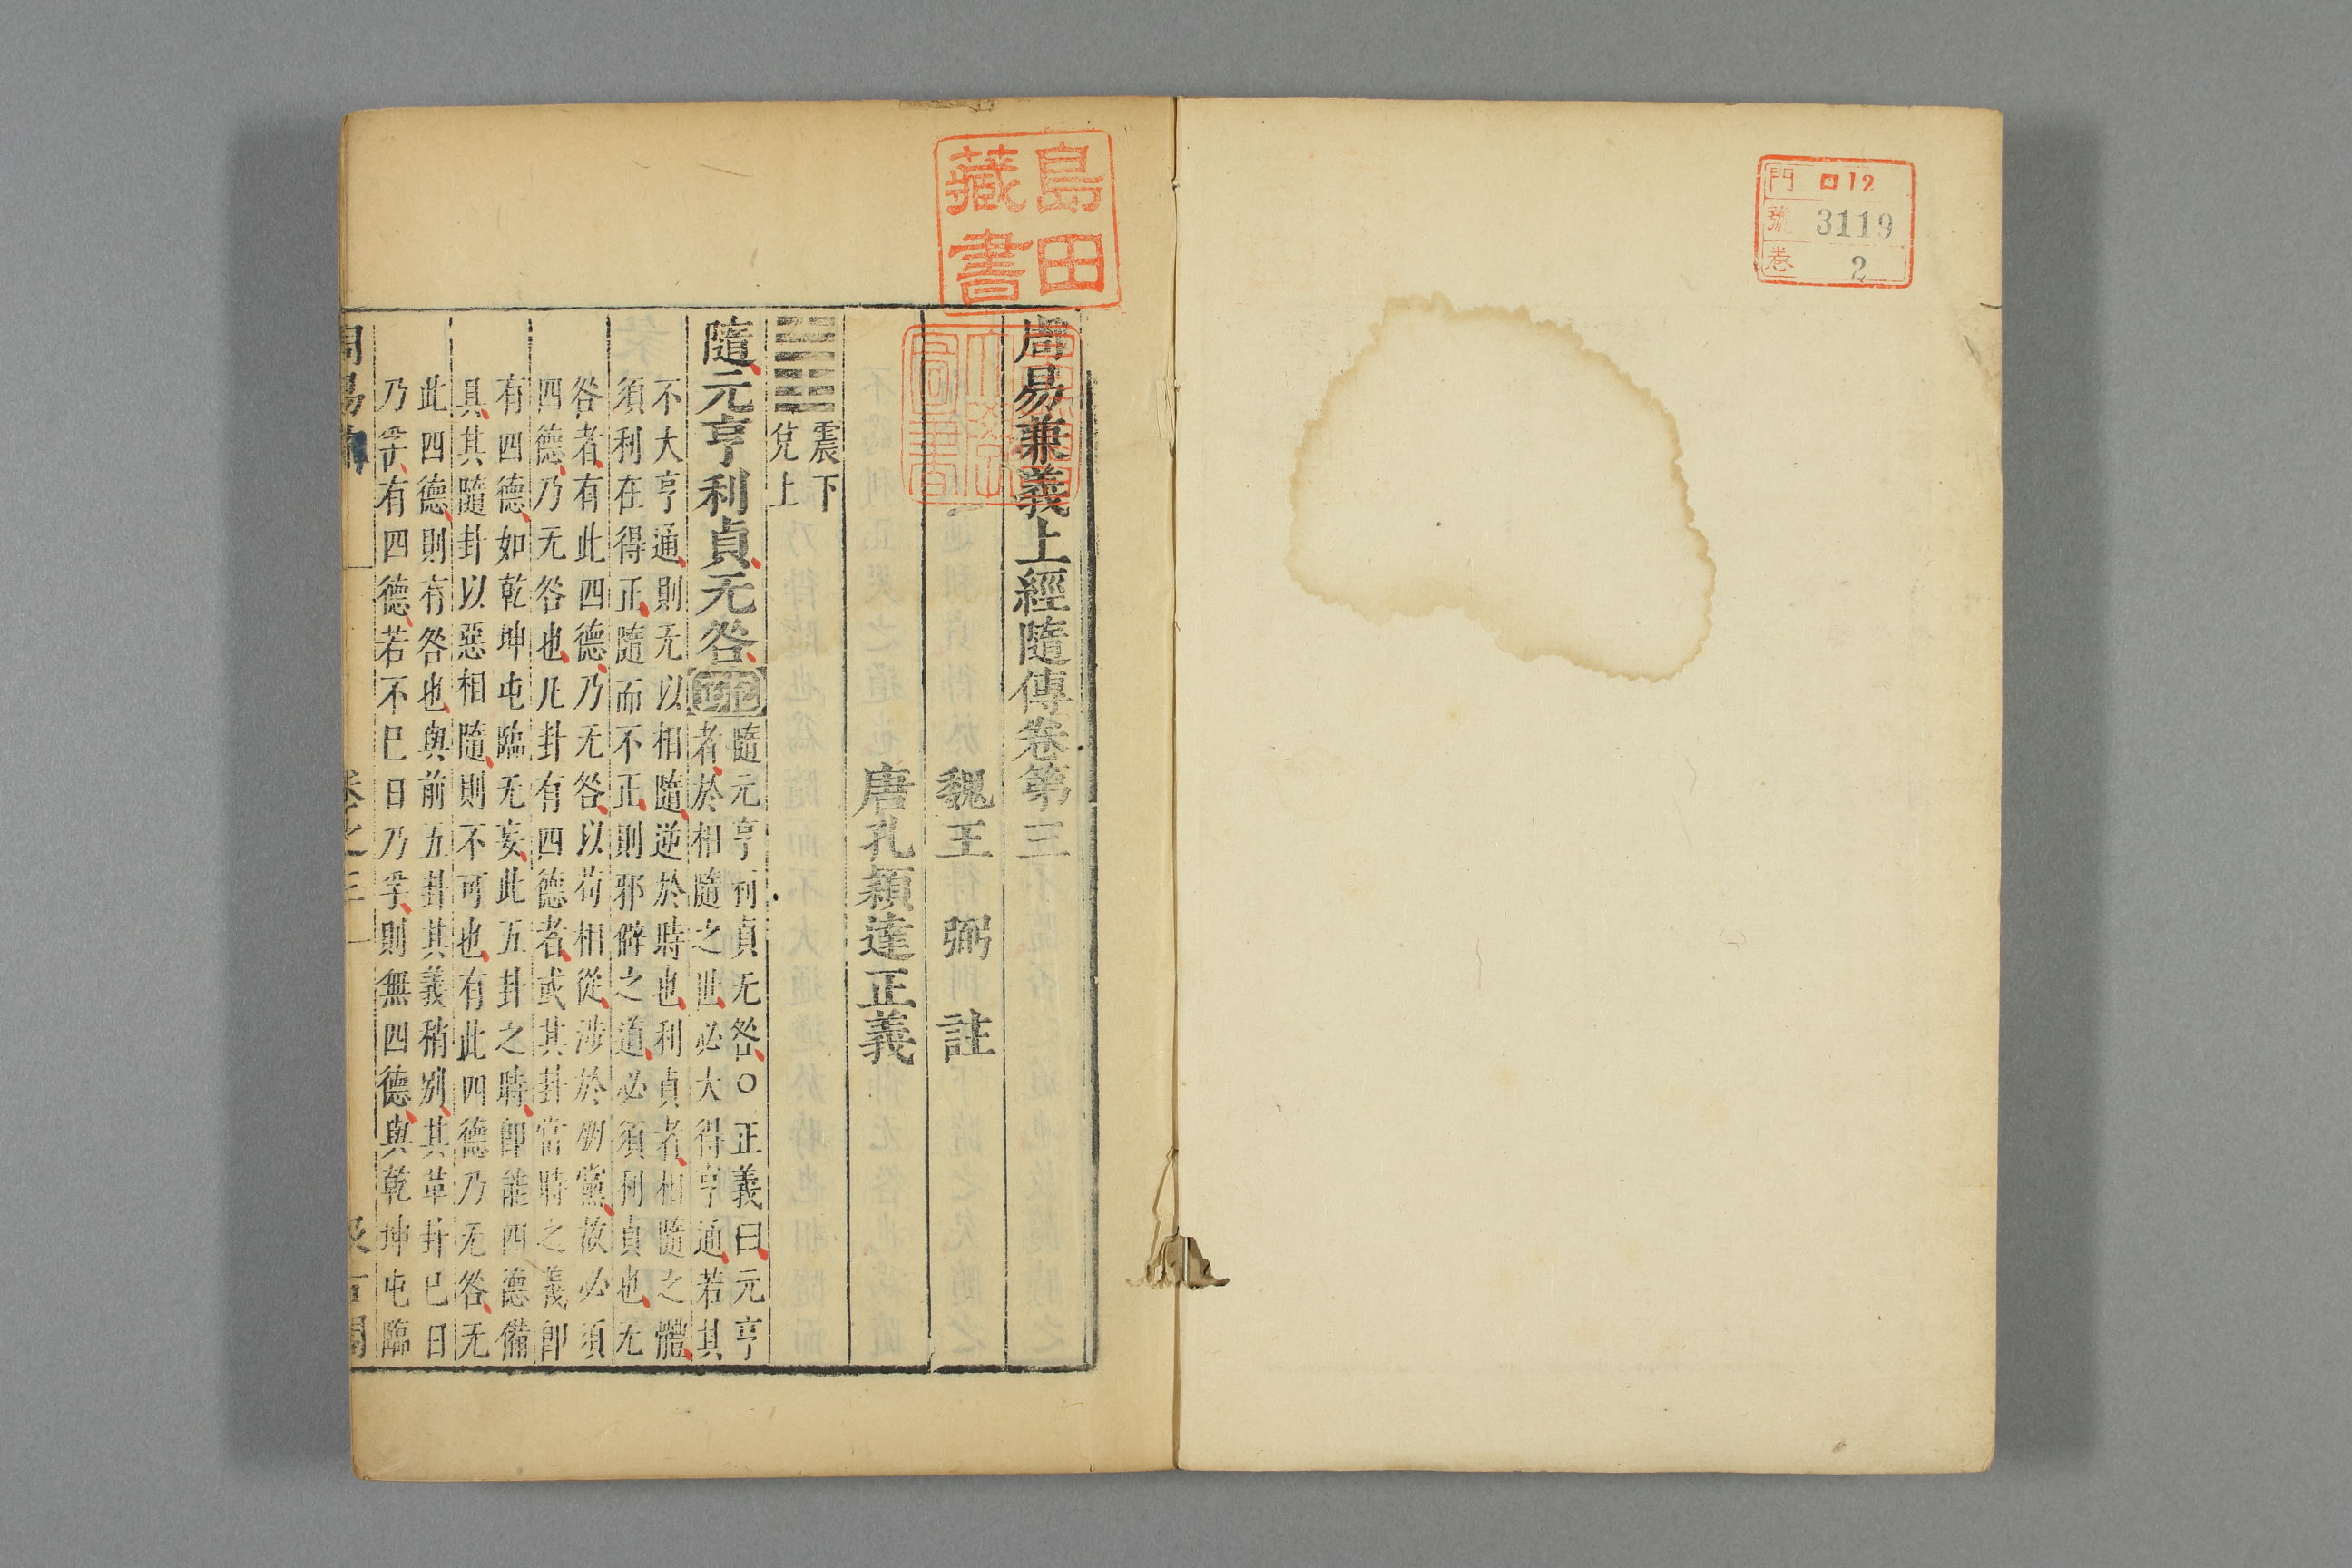 門 ロ12
號 3119
卷 2
島田
藏書
周易兼義上經隨傳卷第三
魏王弼註
唐孔穎達正義
震下
兌上
隨元亨利貞无咎
疏
隨元亨利貞无咎○正義曰元亨
者於相隨之世必大得亨通若其
不大亨通則无以相隨逆於時也利貞者相隨之體
須利在得正隨而不正則邪僻之道必須利貞也无
咎者有此四德乃无咎以苟相從涉於朋黨故必須
四德乃无咎也凡卦有四德者或其卦當時之義卽
有四德如乾坤屯臨无妄此五卦之時卽能四德備
具其隨卦以惡相隨則不可也有此四德乃无咎无
此四德則有咎也與前五卦其義稍別其革卦巳日
乃孚有四德若不巳日乃孚則無四德與乾坤屯臨
周易
卷之三
一
汲古閣